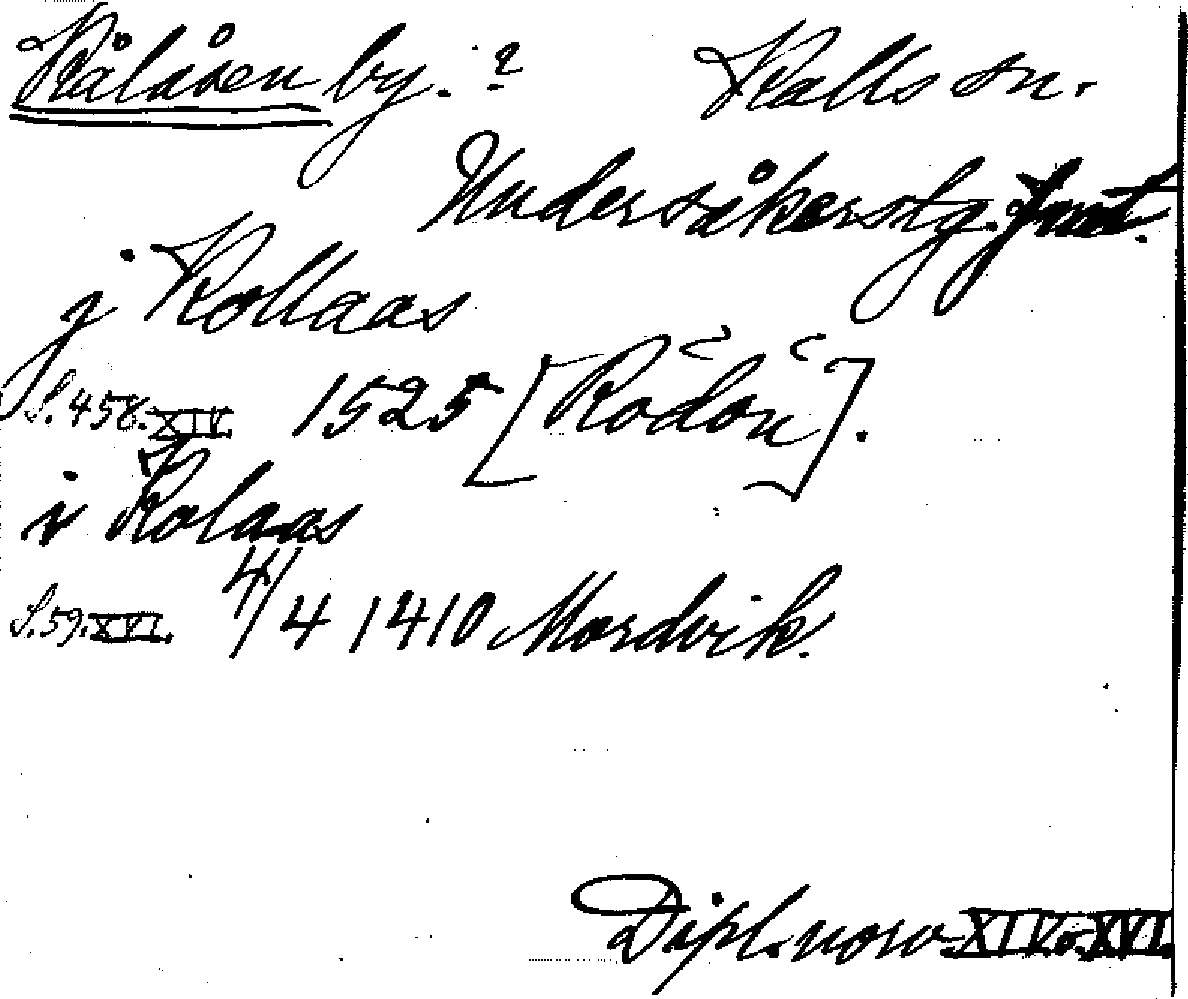 Kålåsen by. ? Kalls sn.
Undersåkers tg. Jmt.
j Kollaas
S. 458. XIV. 1525 [Rödön].
i Kolaas
S. 59. XVI. 4/4 1410 Mordvik.
Dipl. norv. XIV. o. XVI.